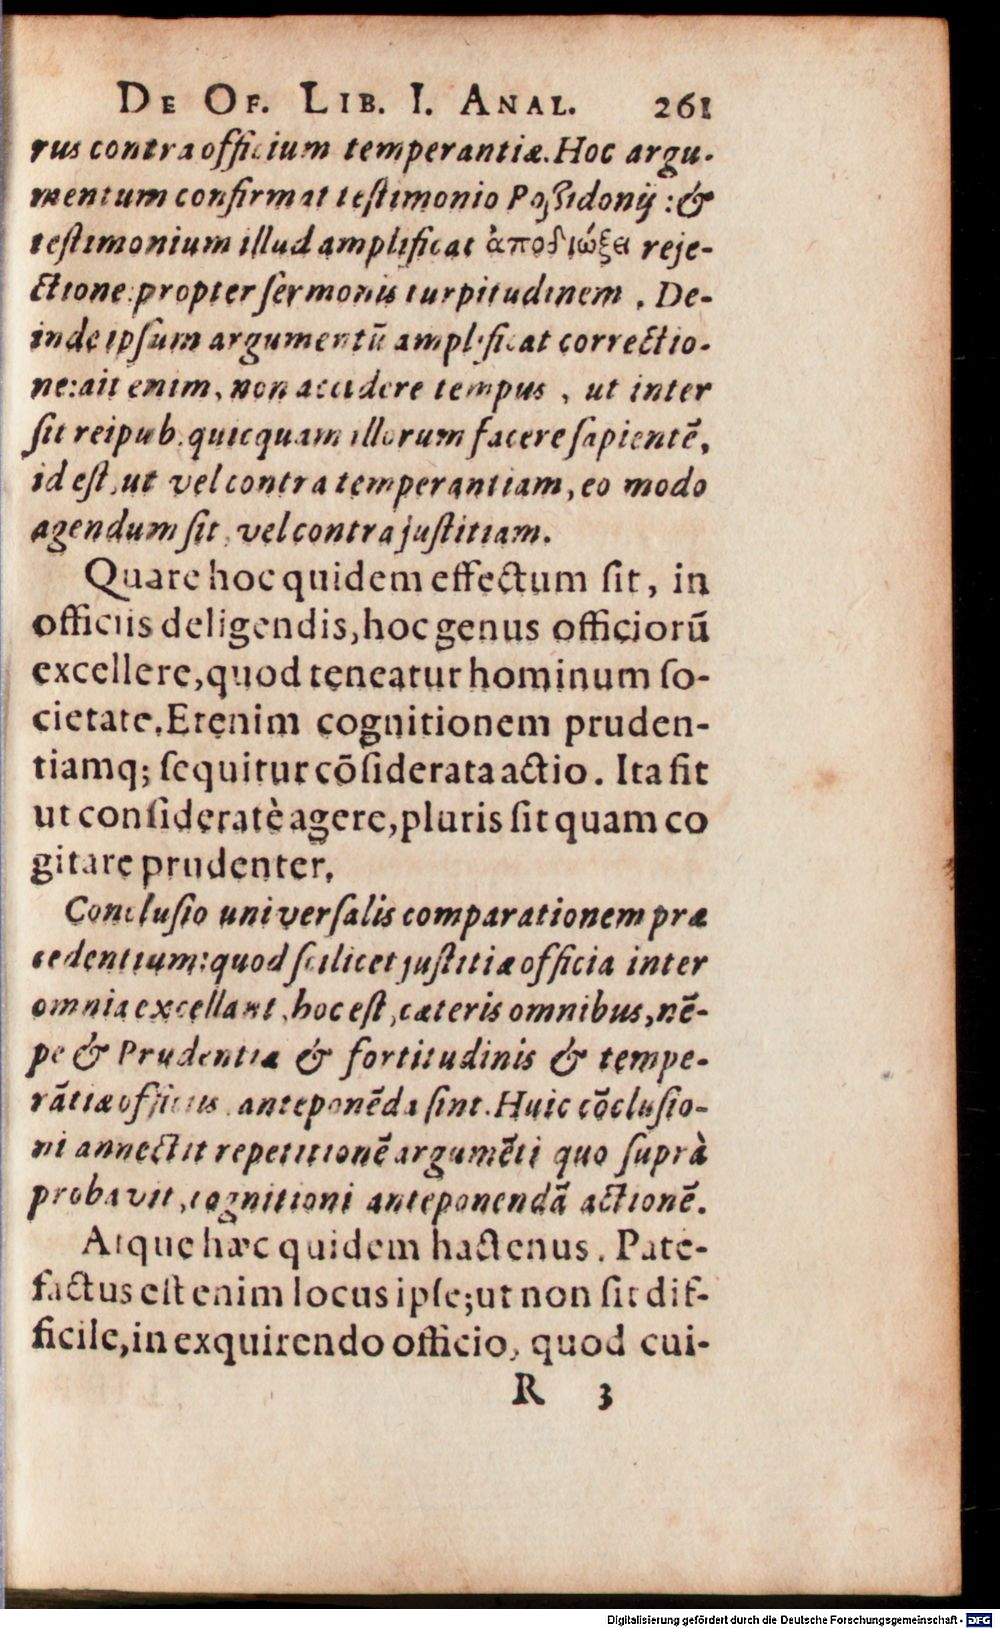 DE OF. LIB. I. ANAL. 261
rus contra officium temperantiæ. Hoc argu-
mentum confirmat testimonio Possidonij: &
testimonium illud amplificat ἀποδιώξει reje-
ctione propter sermonis turpitudinem, De-
inde ipsum argumentū amplificat correctio-
ne: ait enim, non accidere tempus, ut inter
sit reipub. quicquam illorum facere sapientē,
id est, ut vel contra temperantiam, eo modo
agendum sit, vel contra justitiam.
Quare hoc quidem effectum sit, in
officiis deligendis, hoc genus officiorū
excellere, quod teneatur hominum so-
cietate. Etenim cognitionem pruden-
tiamq; sequitur cōsiderata actio. Ita fit
ut consideratè agere, pluris sit quam co
gitare prudenter.
Conclusio universalis comparationem præ
cedentium: quod scilicet justitiæ officia inter
omnia excellant, hoc est, cæteris omnibus, nē-
pe & Prudentiæ & fortitudinis & tempe-
rātiæ officiis, anteponēda sint. Huic cōclusio-
ni annectit repetitionē argumēti quo suprà
probavit, cognitioni anteponendā actionē.
Atque hæc quidem hactenus. Pate-
factus est enim locus ipse; ut non sit dif-
ficile, in exquirendo officio, quod cui-
R 3
Digitalisierung gefördert durch die Deutsche Forschungsgemeinschaft - DFG